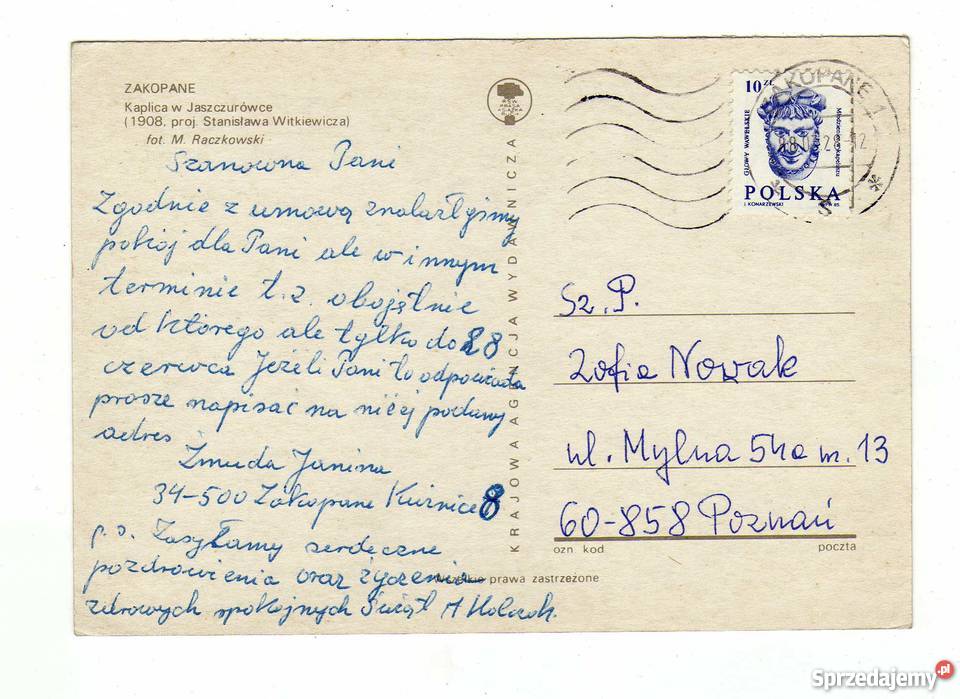 ZAKOPANE
Kaplica w Jaszczurówce
(1908. proj. Stanisława Witkiewicza)
fot. M. Raczkowski
Szanowna Pani
Zgodnie z umową znalazłyśmy
pokój dla Pani ale w innym
terminie t.z. obojętnie
od którego ale tylko do 28
czerwca Jeżeli Pani to odpowiada
prosze napisać na niżej podany
adres
Żmuda Janina
34-500 Zakopane Kuźnice 8
p.s. Zasyłamy serdeczne
pozdrowienia oraz życzenia
zdrowych spokojnych Świąt A
KRAJOWA AGENCJA WYDAWNICZA
Wszelkie prawa zastrzeżone
10 zł
GŁOWY WAWELSKIE
POLSKA
J. KONARZEWSKI
85
ZAKOPANE 1
Sz. P.
Zofia Nowak
ul. Mylna 54a m. 13
60-858 Poznań
ozn kod
poczta
Sprzedajemy.pl